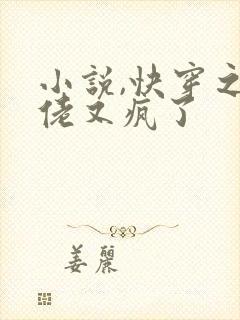 小說,快穿之
佬又疯了
姜麗